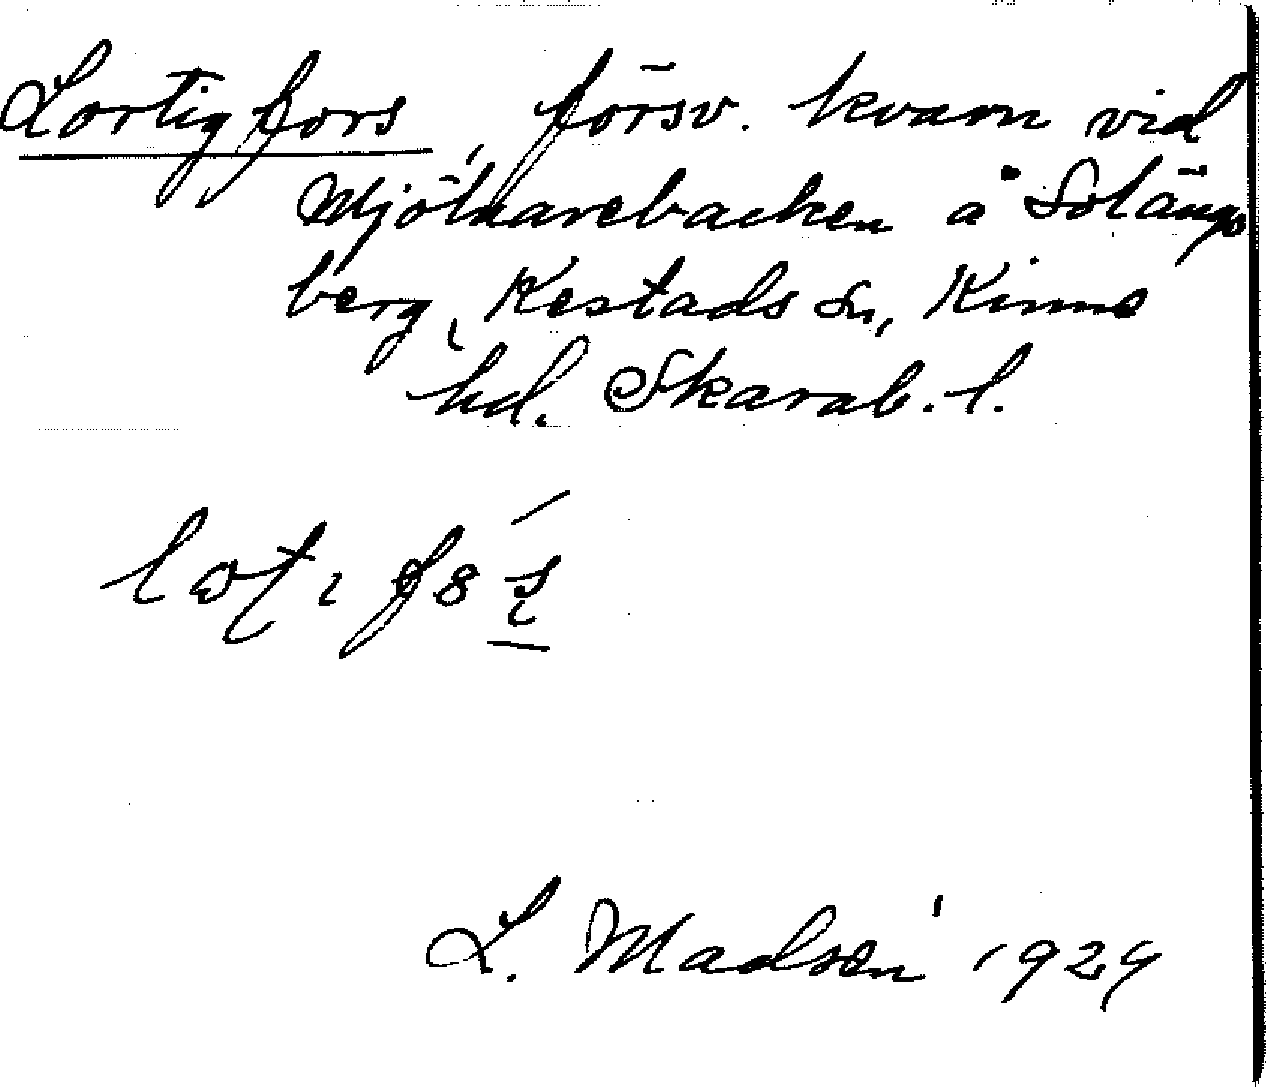 Lortigfors, försv. kvarn vid
Mjölnarebacken å Solängs
berg, Kestads sn, Kinne
hd. Skarab. l.
L. Madsén 1929